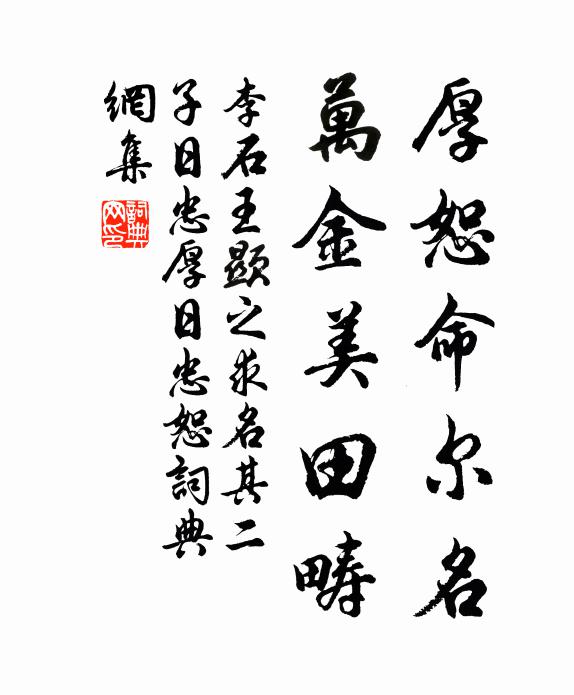 厚恕命尔名
萬金美田疇
李石王顯之求名其二
子日忠厚日忠恕詞典
網集
詞典
网印